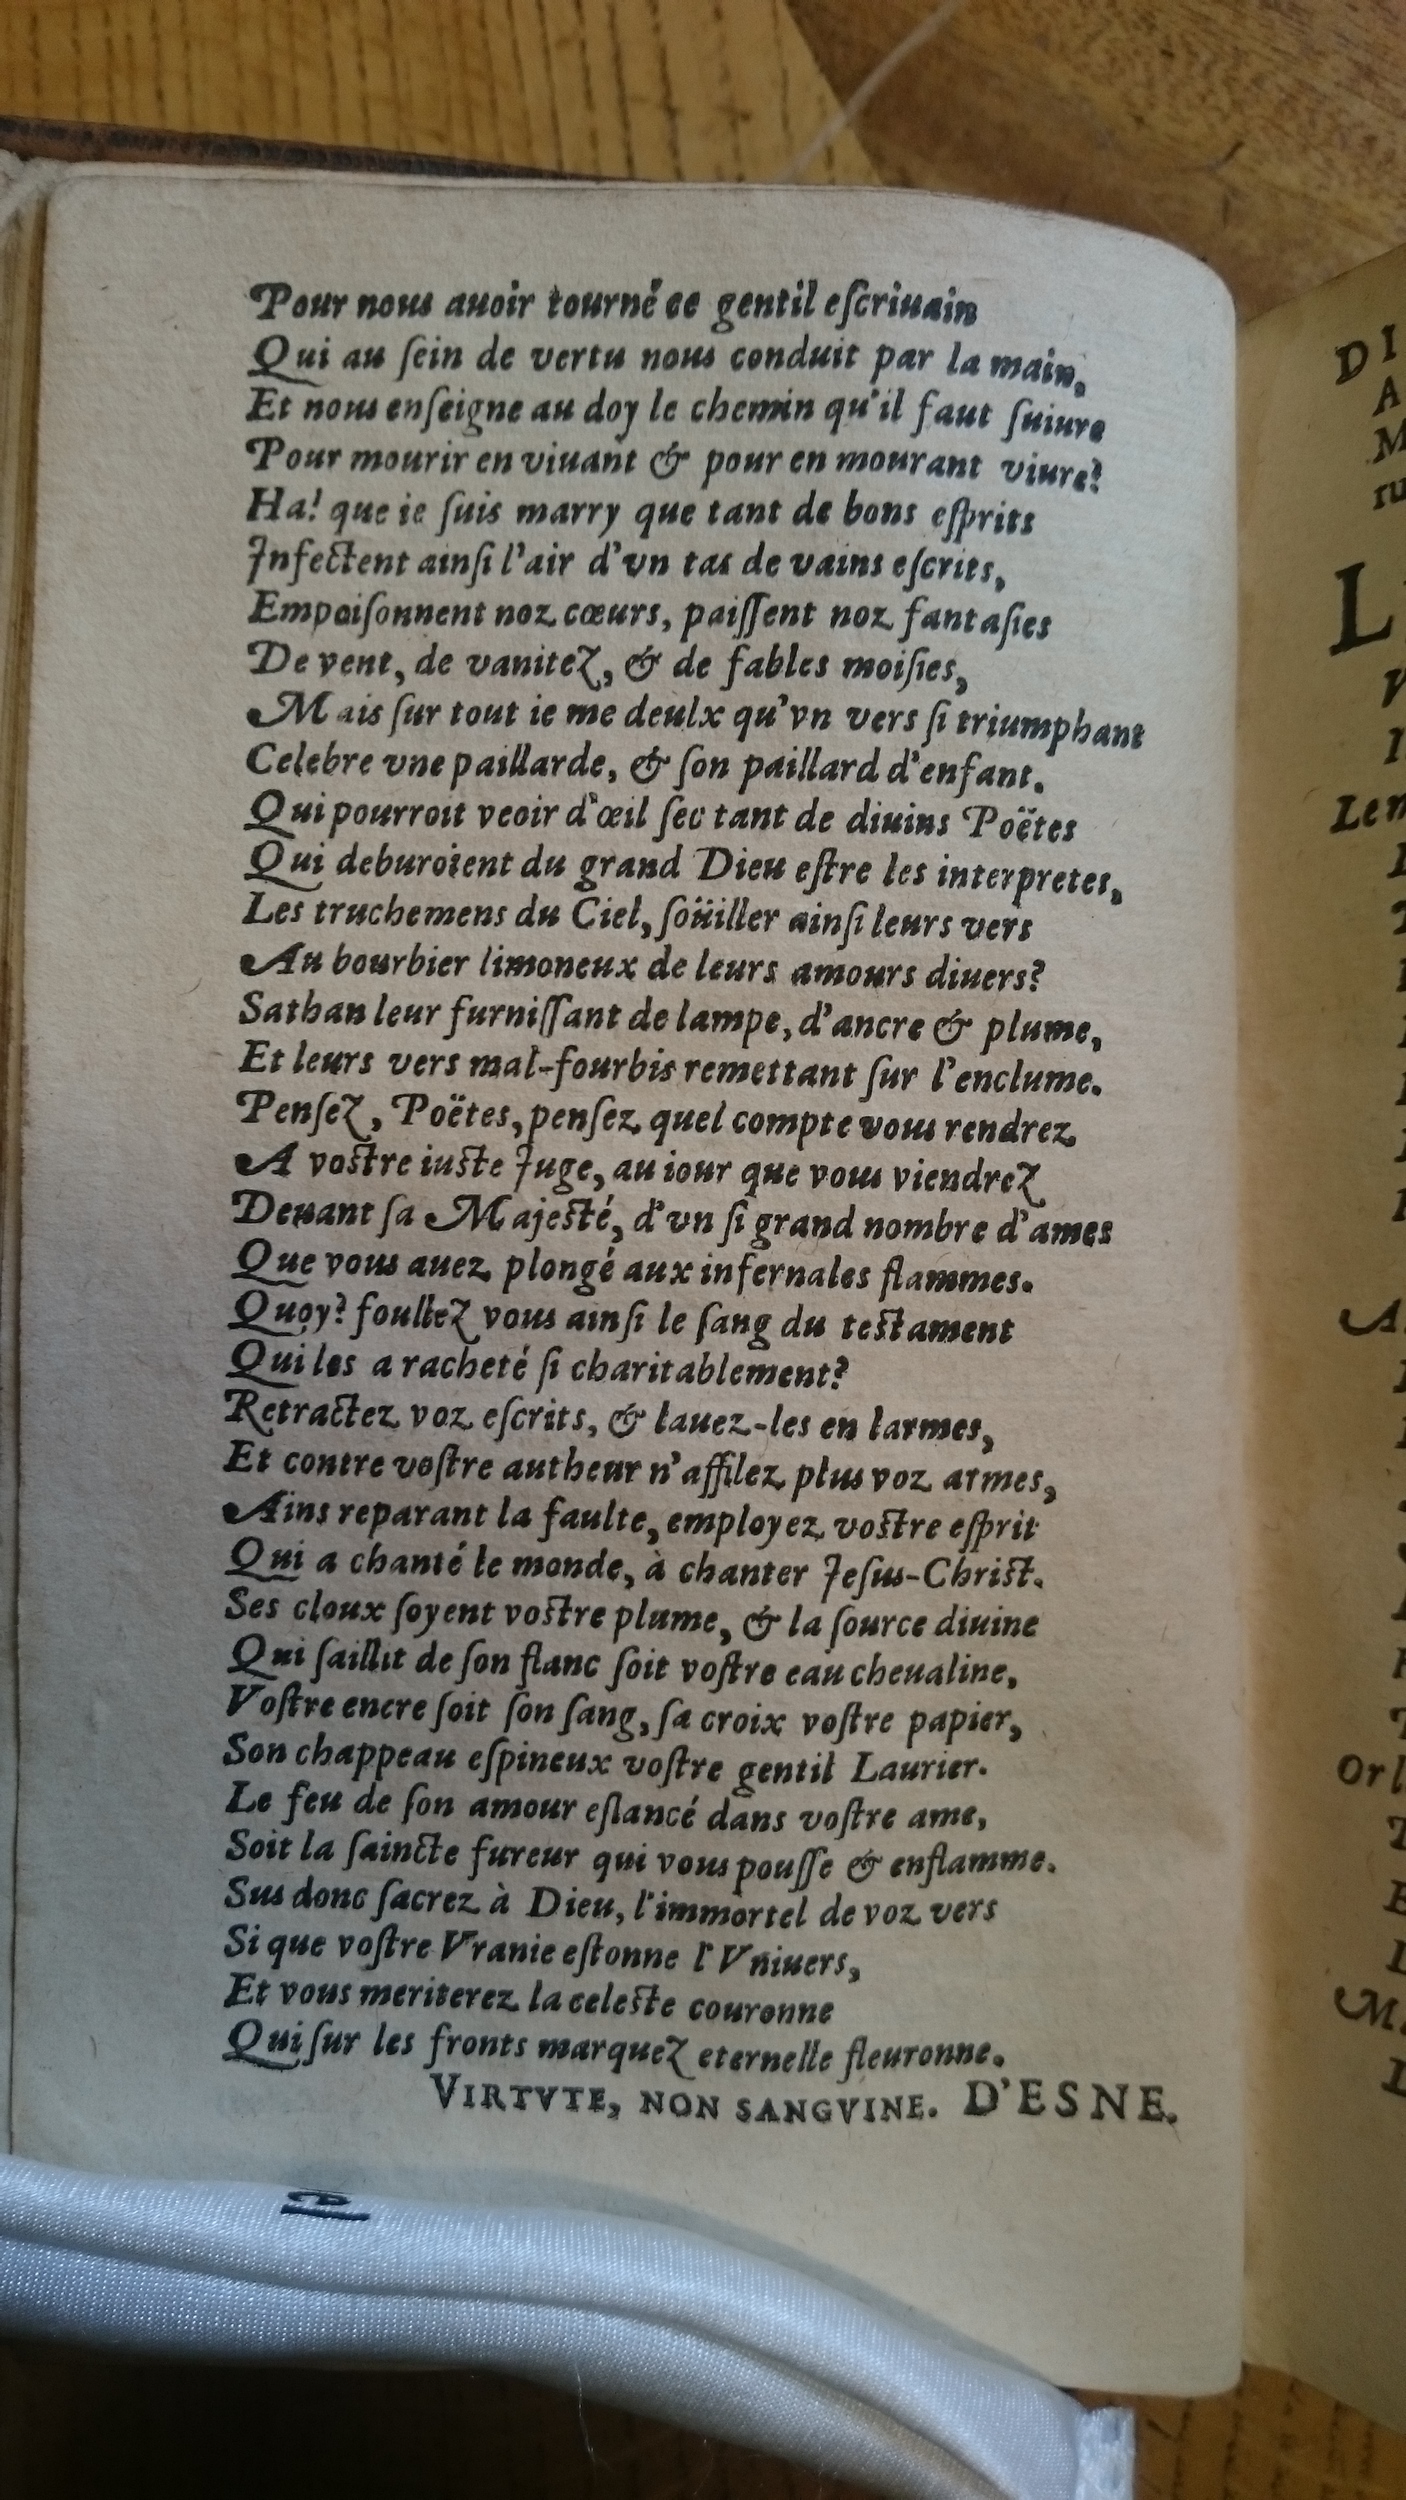 Pour nous auoir tourné ce gentil eſcriuain
Qui au ſein de vertu nous conduit par la main,
Et nous enſeigne au doy le chemin qu'il faut ſuiure
Pour mourir en viuant & pour en mourant viure?
Ha! que ie ſuis marry que tant de bons eſprits
Infectent ainſi l'air d'vn tas de vains eſcrits,
Empoiſonnent noz cœurs, paiſſent noz fantaſies
De vent, de vanitez, & de fables moiſies,
Mais ſur tout ie me deulx qu'vn vers ſi triumphant
Celebre vne paillarde, & ſon paillard d'enfant.
Qui pourroit veoir d'œil ſec tant de diuins Poëtes
Qui deburoient du grand Dieu eſtre les interpretes,
Les truchemens du Ciel, ſoüiller ainſi leurs vers
Au bourbier limoneux de leurs amours diuers?
Sathan leur furniſſant de lampe, d'ancre & plume,
Et leurs vers mal-fourbis remettant ſur l'enclume.
Penſez, Poëtes, penſez quel compte vous rendrez
A voſtre iuſte Juge, au iour que vous viendrez
Deuant ſa Majeſté, d'vn ſi grand nombre d'ames
Que vous auez plongé aux infernales flammes.
Quoy? foullez vous ainſi le ſang du teſtament
Qui les a racheté ſi charitablement?
Retractez voz eſcrits, & lauez-les en larmes,
Et contre voſtre autheur n'affilez plus voz armes,
Ains reparant la faulte, employez voſtre eſprit
Qui a chanté le monde, à chanter Jeſus-Chriſt.
Ses cloux ſoyent voſtre plume, & la ſource diuine
Qui ſaillit de ſon flanc ſoit voſtre eau cheualine,
Voſtre encre ſoit ſon ſang, ſa croix voſtre papier,
Son chappeau eſpineux voſtre gentil Laurier.
Le feu de ſon amour eſlancé dans voſtre ame,
Soit la ſaincte fureur qui vous pouſſe & enflamme.
Sus donc ſacrez à Dieu, l'immortel de voz vers
Si que voſtre Vranie eſtonne l'Vniuers,
Et vous meriterez la celeſte couronne
Qui ſur les fronts marquez eternelle fleuronne.
VIRTVTE, NON SANGVINE. D'ESNE.
DI
A
M
L
Or l